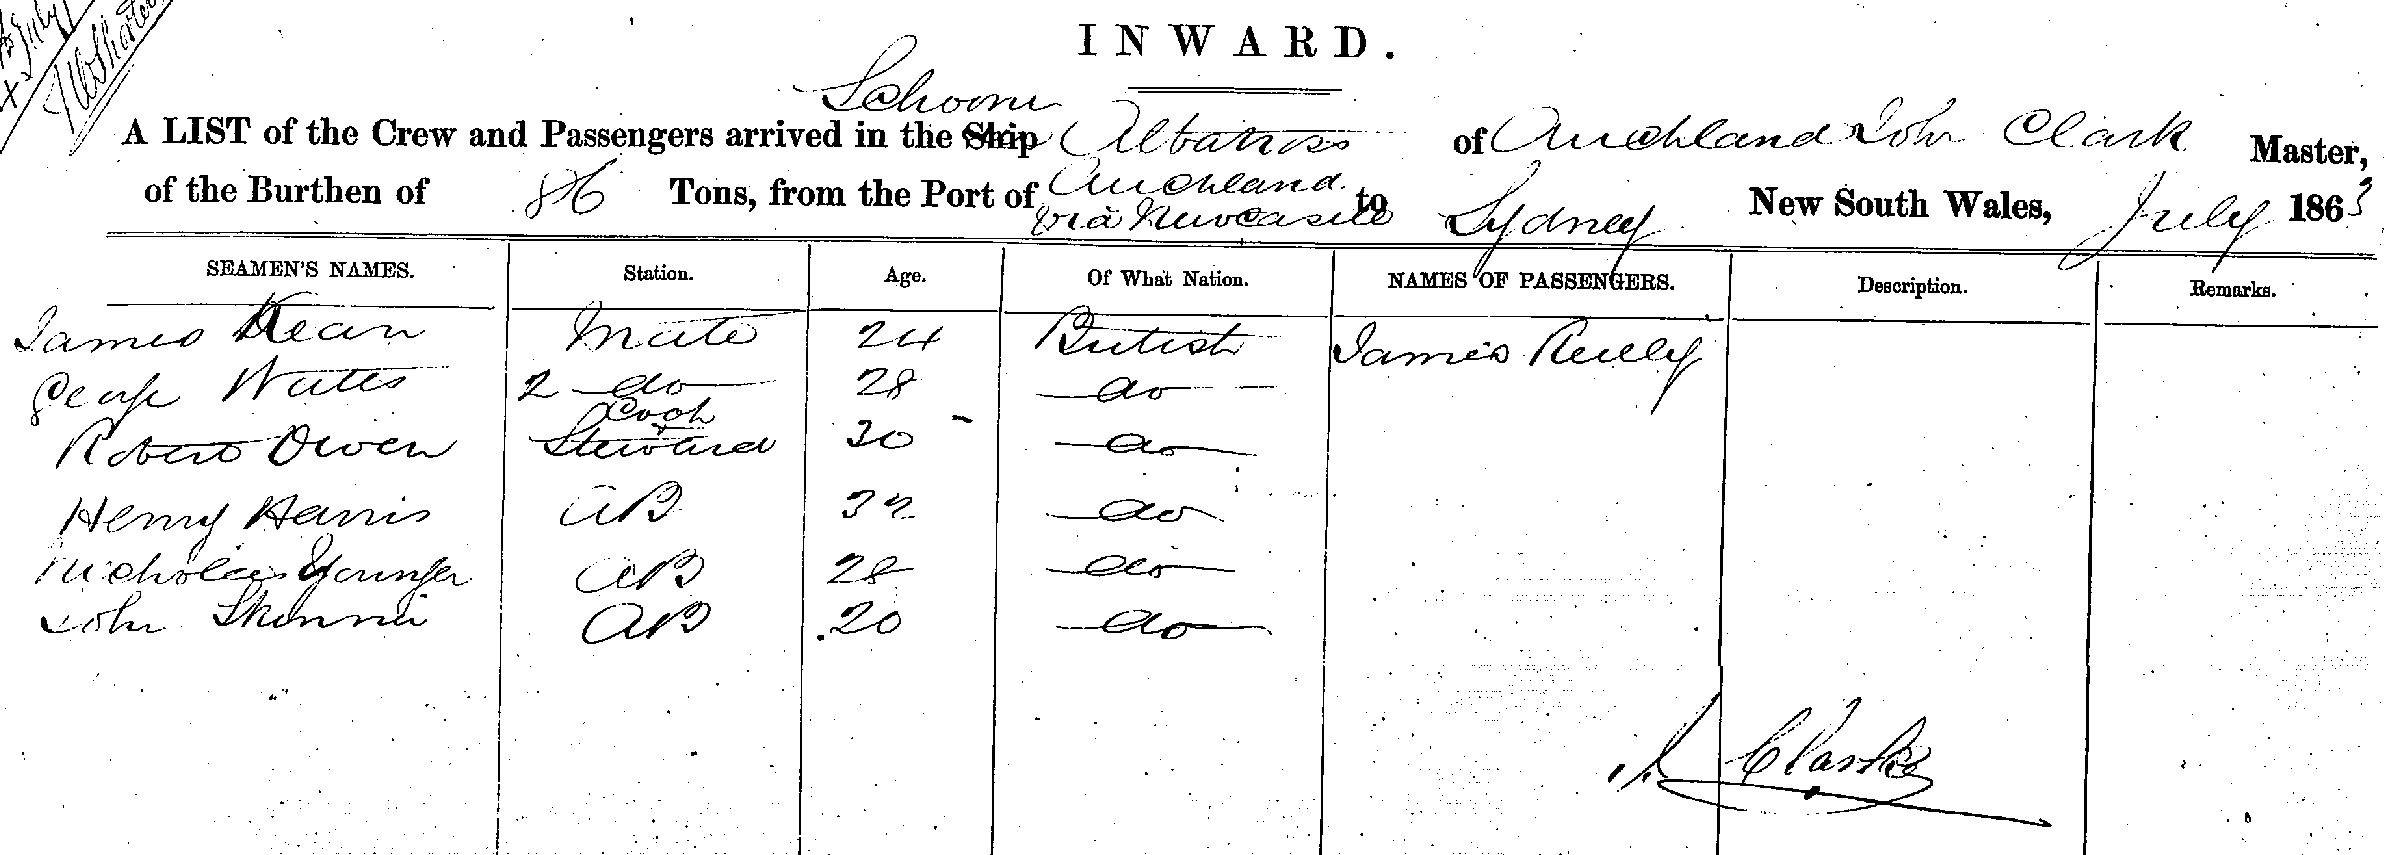 July
INWARD.
Schoonr
A LIST of the Crew and Passengers arrived in the Ship Albatross of Auckland John Clark Master,
of the Burthen of 86 Tons, from the Port of Auckland via Newcastle to Sydney New South Wales, July 1863
SEAMEN'S NAMES. Station. Age. Of What Nation. NAMES OF PASSENGERS. Description. Remarks.
James Kean Mate 24 British James Reilly
George Watts 2 do 28 do
Robert Owen Cook + Steward 30 do
Henry Harris AB do
Nicholas Younger AB 28 do
John Skinner AB 20 do
J. Clarke